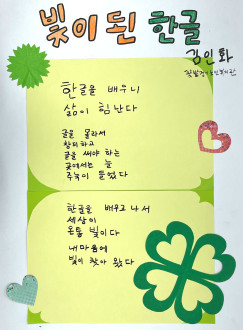 빛이 된 한글
김인화
한글을 배우니
삶이 힘난다
글을 몰라서
창피하고
글을 써야 하는
곳에서는 늘
주눅이 들었다
한글을 배우고 나서
세상이
온통 빛이다
내 마음에
빛이 찾아 왔다